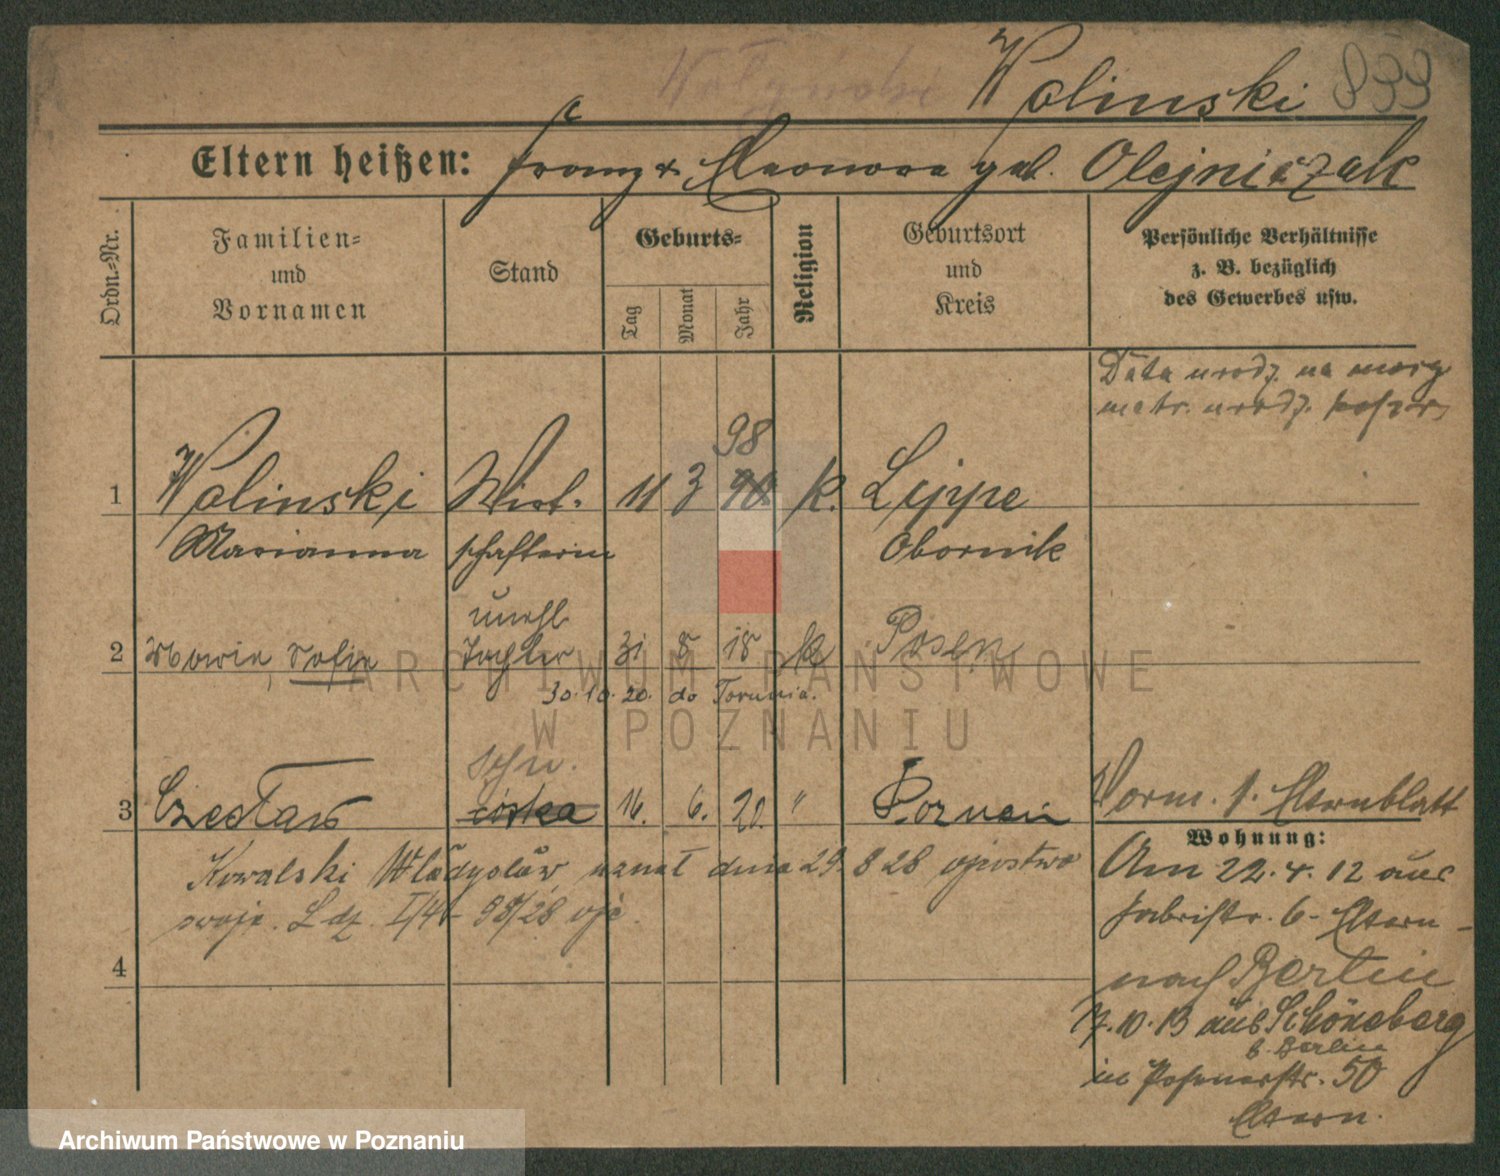 Wolinski 833
Eltern heißen: Franz & Eleonora geb. Olejniczak
Ordn.-Nr.
Familien-
und
Vornamen
Stand
Geburts-
Tag
Monat
Jahr
Religion
Geburtsort
und
Kreis
Persönliche Verhältnisse
z. B. bezüglich
des Gewerbes usw.
Data urodz. na
metr. urodz.
98
1 Wolinski Wirt- 11 3 90. k. Lippe
Marianna schafterin Obornik
unehl.
2 Maria, Sofie Tochter 31 8 18 k Posen
30.10.20. do Torunia.
Sohn.
3 Czesław córka 16. 6. 20. " Poznań
Vorm. s. Elternblatt
Wohnung:
Kowalski Władysław uznał dnia 29 8 28 ojcostwo
swoje. L. dz. I/4
Am 22. 4. 12 aus
6 - Eltern -
nach Berlin
4
7. 10. 13 aus Schöneberg
b. Berlin
in Posenerstr. 50
Eltern.
ARCHIWUM PAŃSTWOWE
W POZNANIU
Archiwum Państwowe w Poznaniu